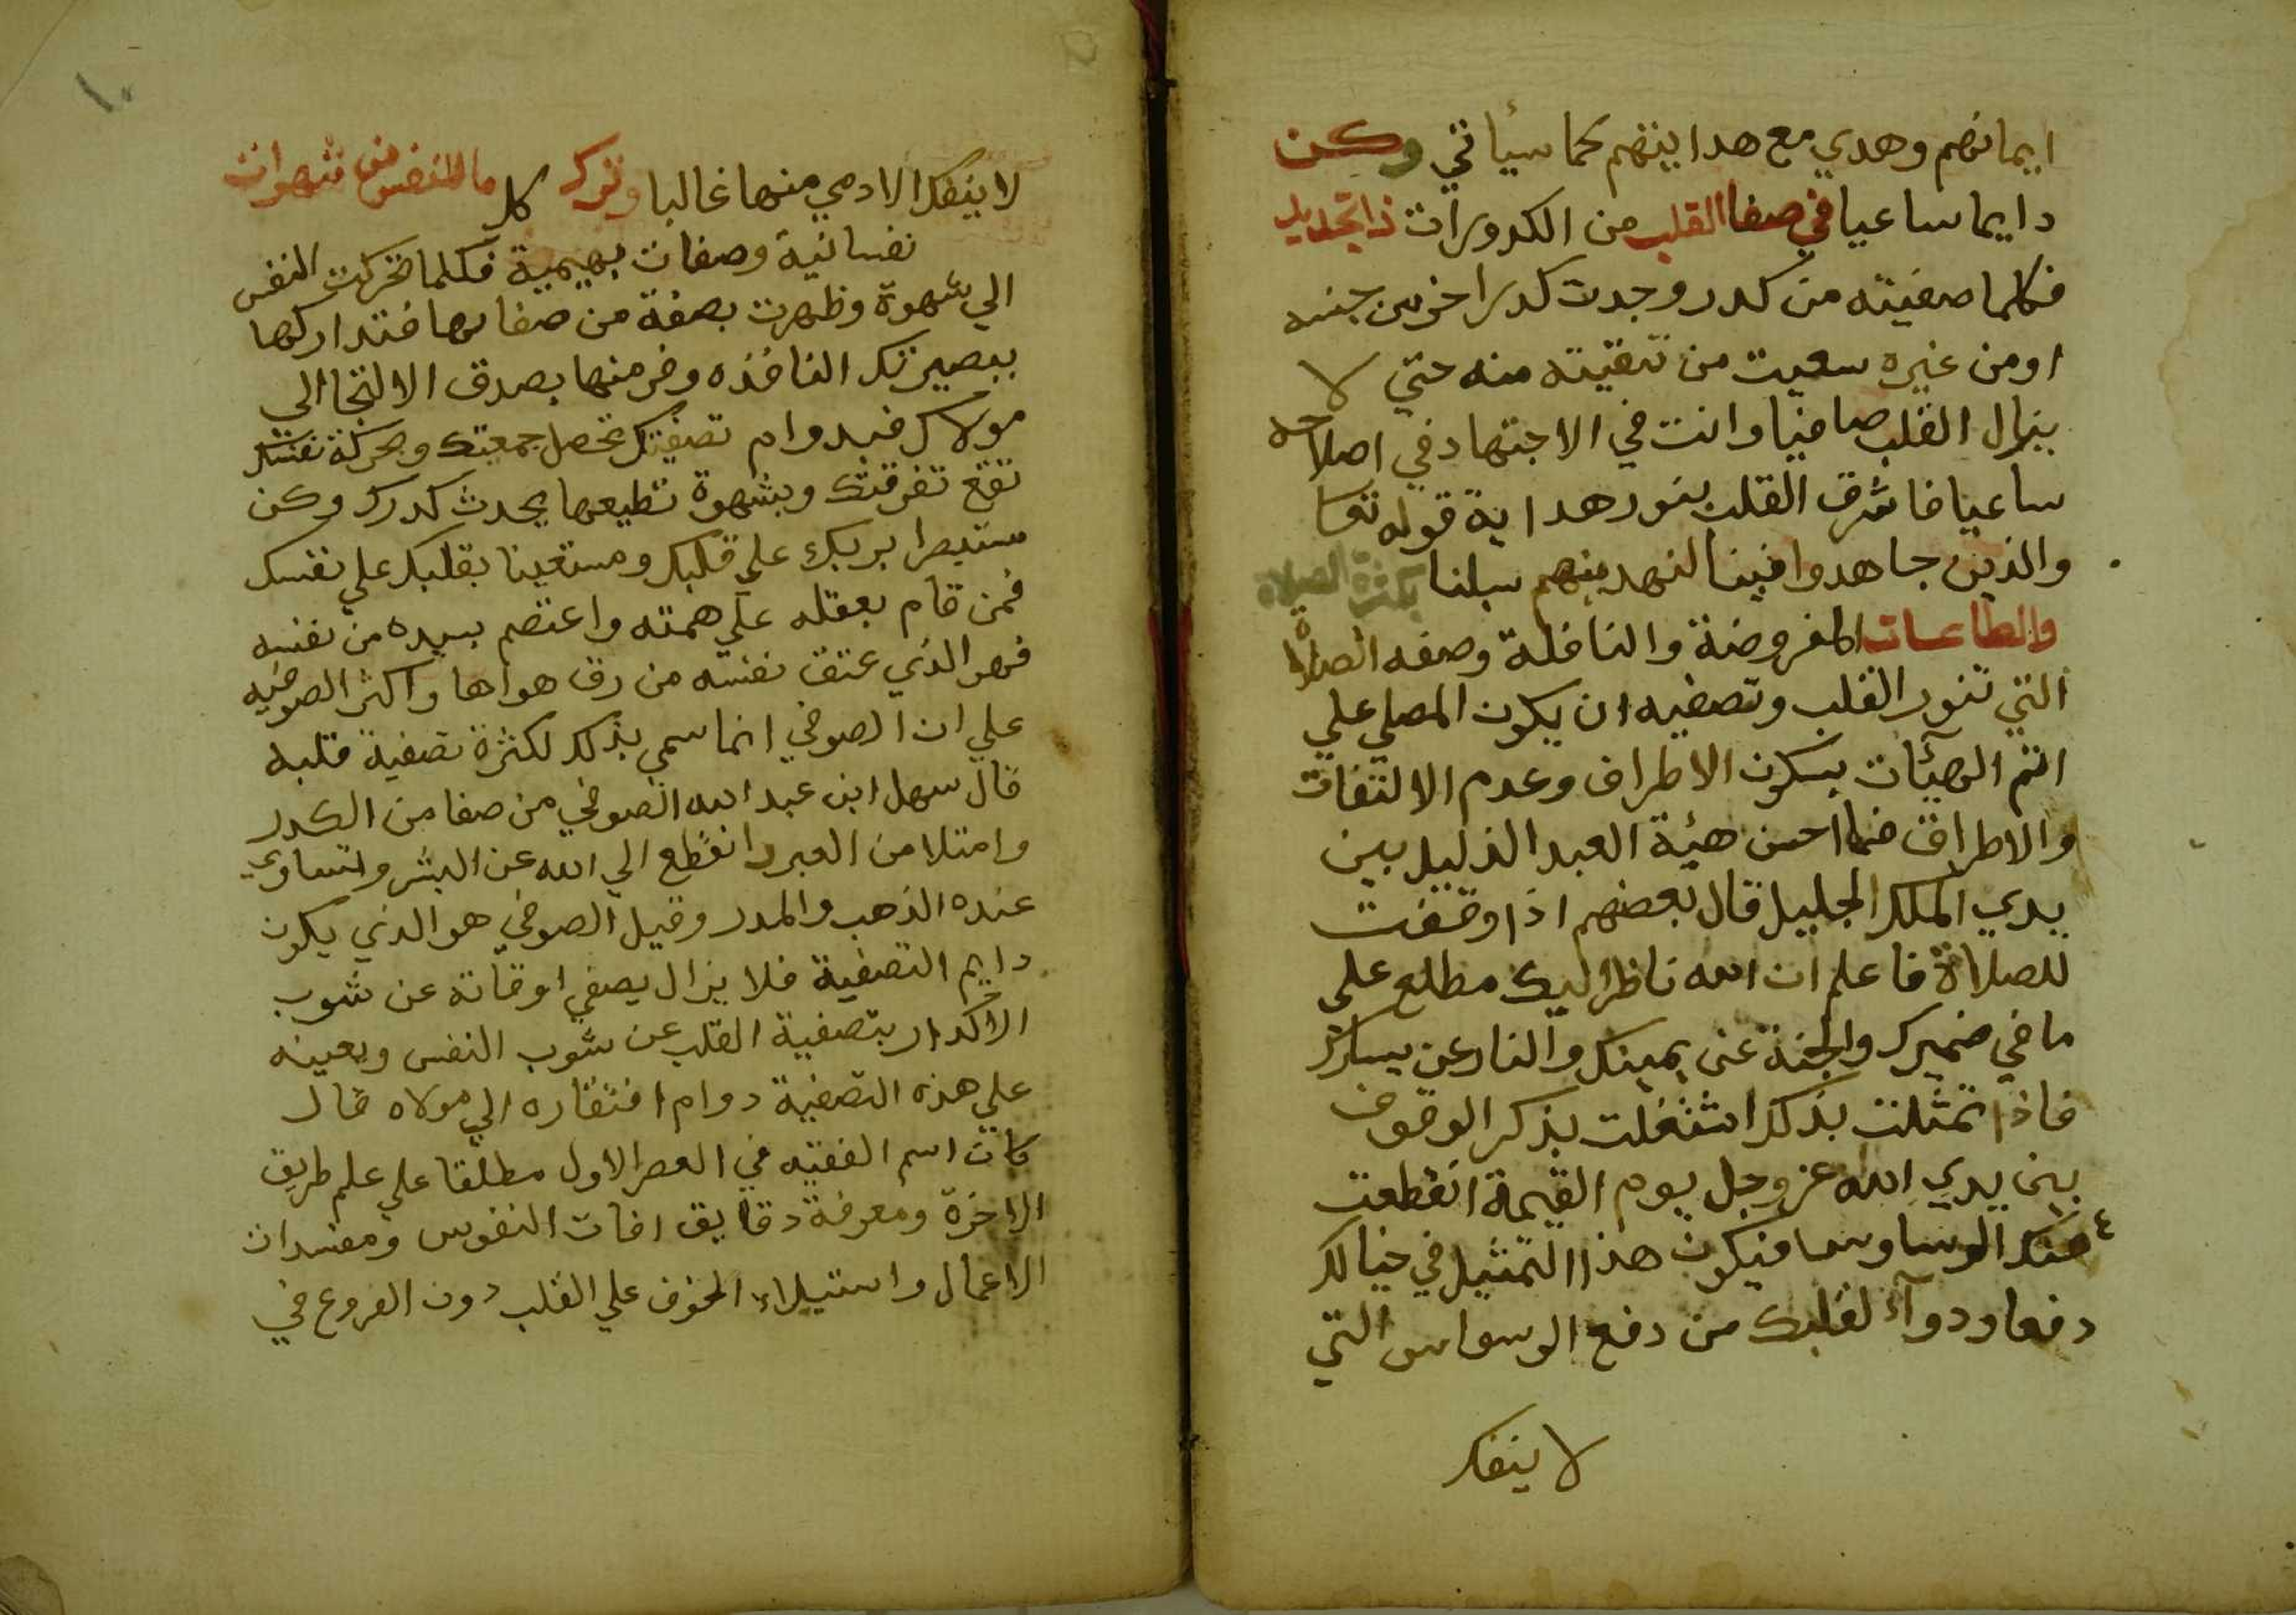 ايمانهم وهدي مع هدايتهم كما سيأتي وكن
دايما ساعيا في صفا القلب من الكدورات ذا تجديد
فكلما صفيته من كدر وجدت كدرا اخر من جنسه
او من غيره سعيت من تنقيته منه حتي لا
يزال القلب صافيا وانت في الاجتهاد في اصلاحه
ساعيا فاشرق القلب بنور هداية قوله تعا
والذين جاهدوا فينا لنهدينهم سبلنا بكثرة الصلاة
والطاعات المفروضة والنافلة وصفه الصلاة
التي تنور القلب وتصفيه ان يكون المصلي علي
اتم الهيئات بسكون الاطراف وعدم الالتفات
والاطراق فما احسن هيئة العبد الذليل بين
يدي الملك الجليل قال بعضهم اذا وقفت
للصلاة فاعلم ان الله ناظر اليك مطلع علي
ما في ضميرك والجنة عن يمينك والنار عن يسارك
فاذا تمثلت بذلك اشتغلت بذكر الوقوف
بين يدي الله عز وجل يوم القيمة انقطعت
عنك الوساوس فيكون هذا التمثيل في خيالك
دفعا ودوآء لقلبك من دفع الوسواس التي
لا ينفك
١٠
لا ينفك الادمي منها غالبا وترك كل ما للنفس من شهوات
نفسانية وصفات بهيمية فكلما تحركت النفس
الي شهوة وظهرت بصفة من صفاتها فتداركها
ببصيرتك النافذه وفر منها بصدق الالتجا الي
مولاك فبدوام تصفيتك تحصل جمعيتك وبحركة نفسك
تقع تفرقتك وبشهوة تطيعها يحدث كدرك وكن
مستبصرا بربك علي قلبك ومستعينا بقلبك علي نفسك
فمن قام بعقله علي همته واعتصم بسيده من نفسه
فهو الذي عتق نفسه من رق هواها واكثر الصوفيه
علي ان الصوفي انما سمي بذلك لكثرة تصفية قلبه
قال سهل ابن عبد الله الصوفي من صفا من الكدر
وامتلا من العبر وانقطع الي الله عن البشر وتساوي
عنده الذهب والمدر وقيل الصوفي هو الذي يكون
دايم التصفية فلا يزال يصفي اوقاته عن شوب
الاكدار بتصفية القلب عن شوب النفس ويعينه
علي هذه التصفية دوام افتقاره الي مولاه قال
كان اسم الفقيه في العصر الاول مطلقا علي علم طريق
الاخرة ومعرفة دقايق افات النفوس ومفسدات
الاعمال واستيلاء الخوف علي القلب دون الفروع في